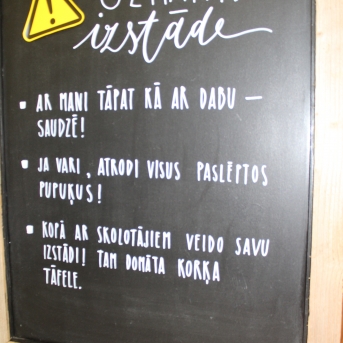 izstāde
▪ AR MANI TĀPAT KĀ AR DABU –
SAUDZĒ!
▪ JA VARI, ATRODI VISUS PASLĒPTOS
PUPUĶUS!
▪ KOPĀ AR SKOLOTĀJIEM VEIDO SAVU
IZSTĀDI! TAM DOMĀTA KORĶA
TĀFELE.